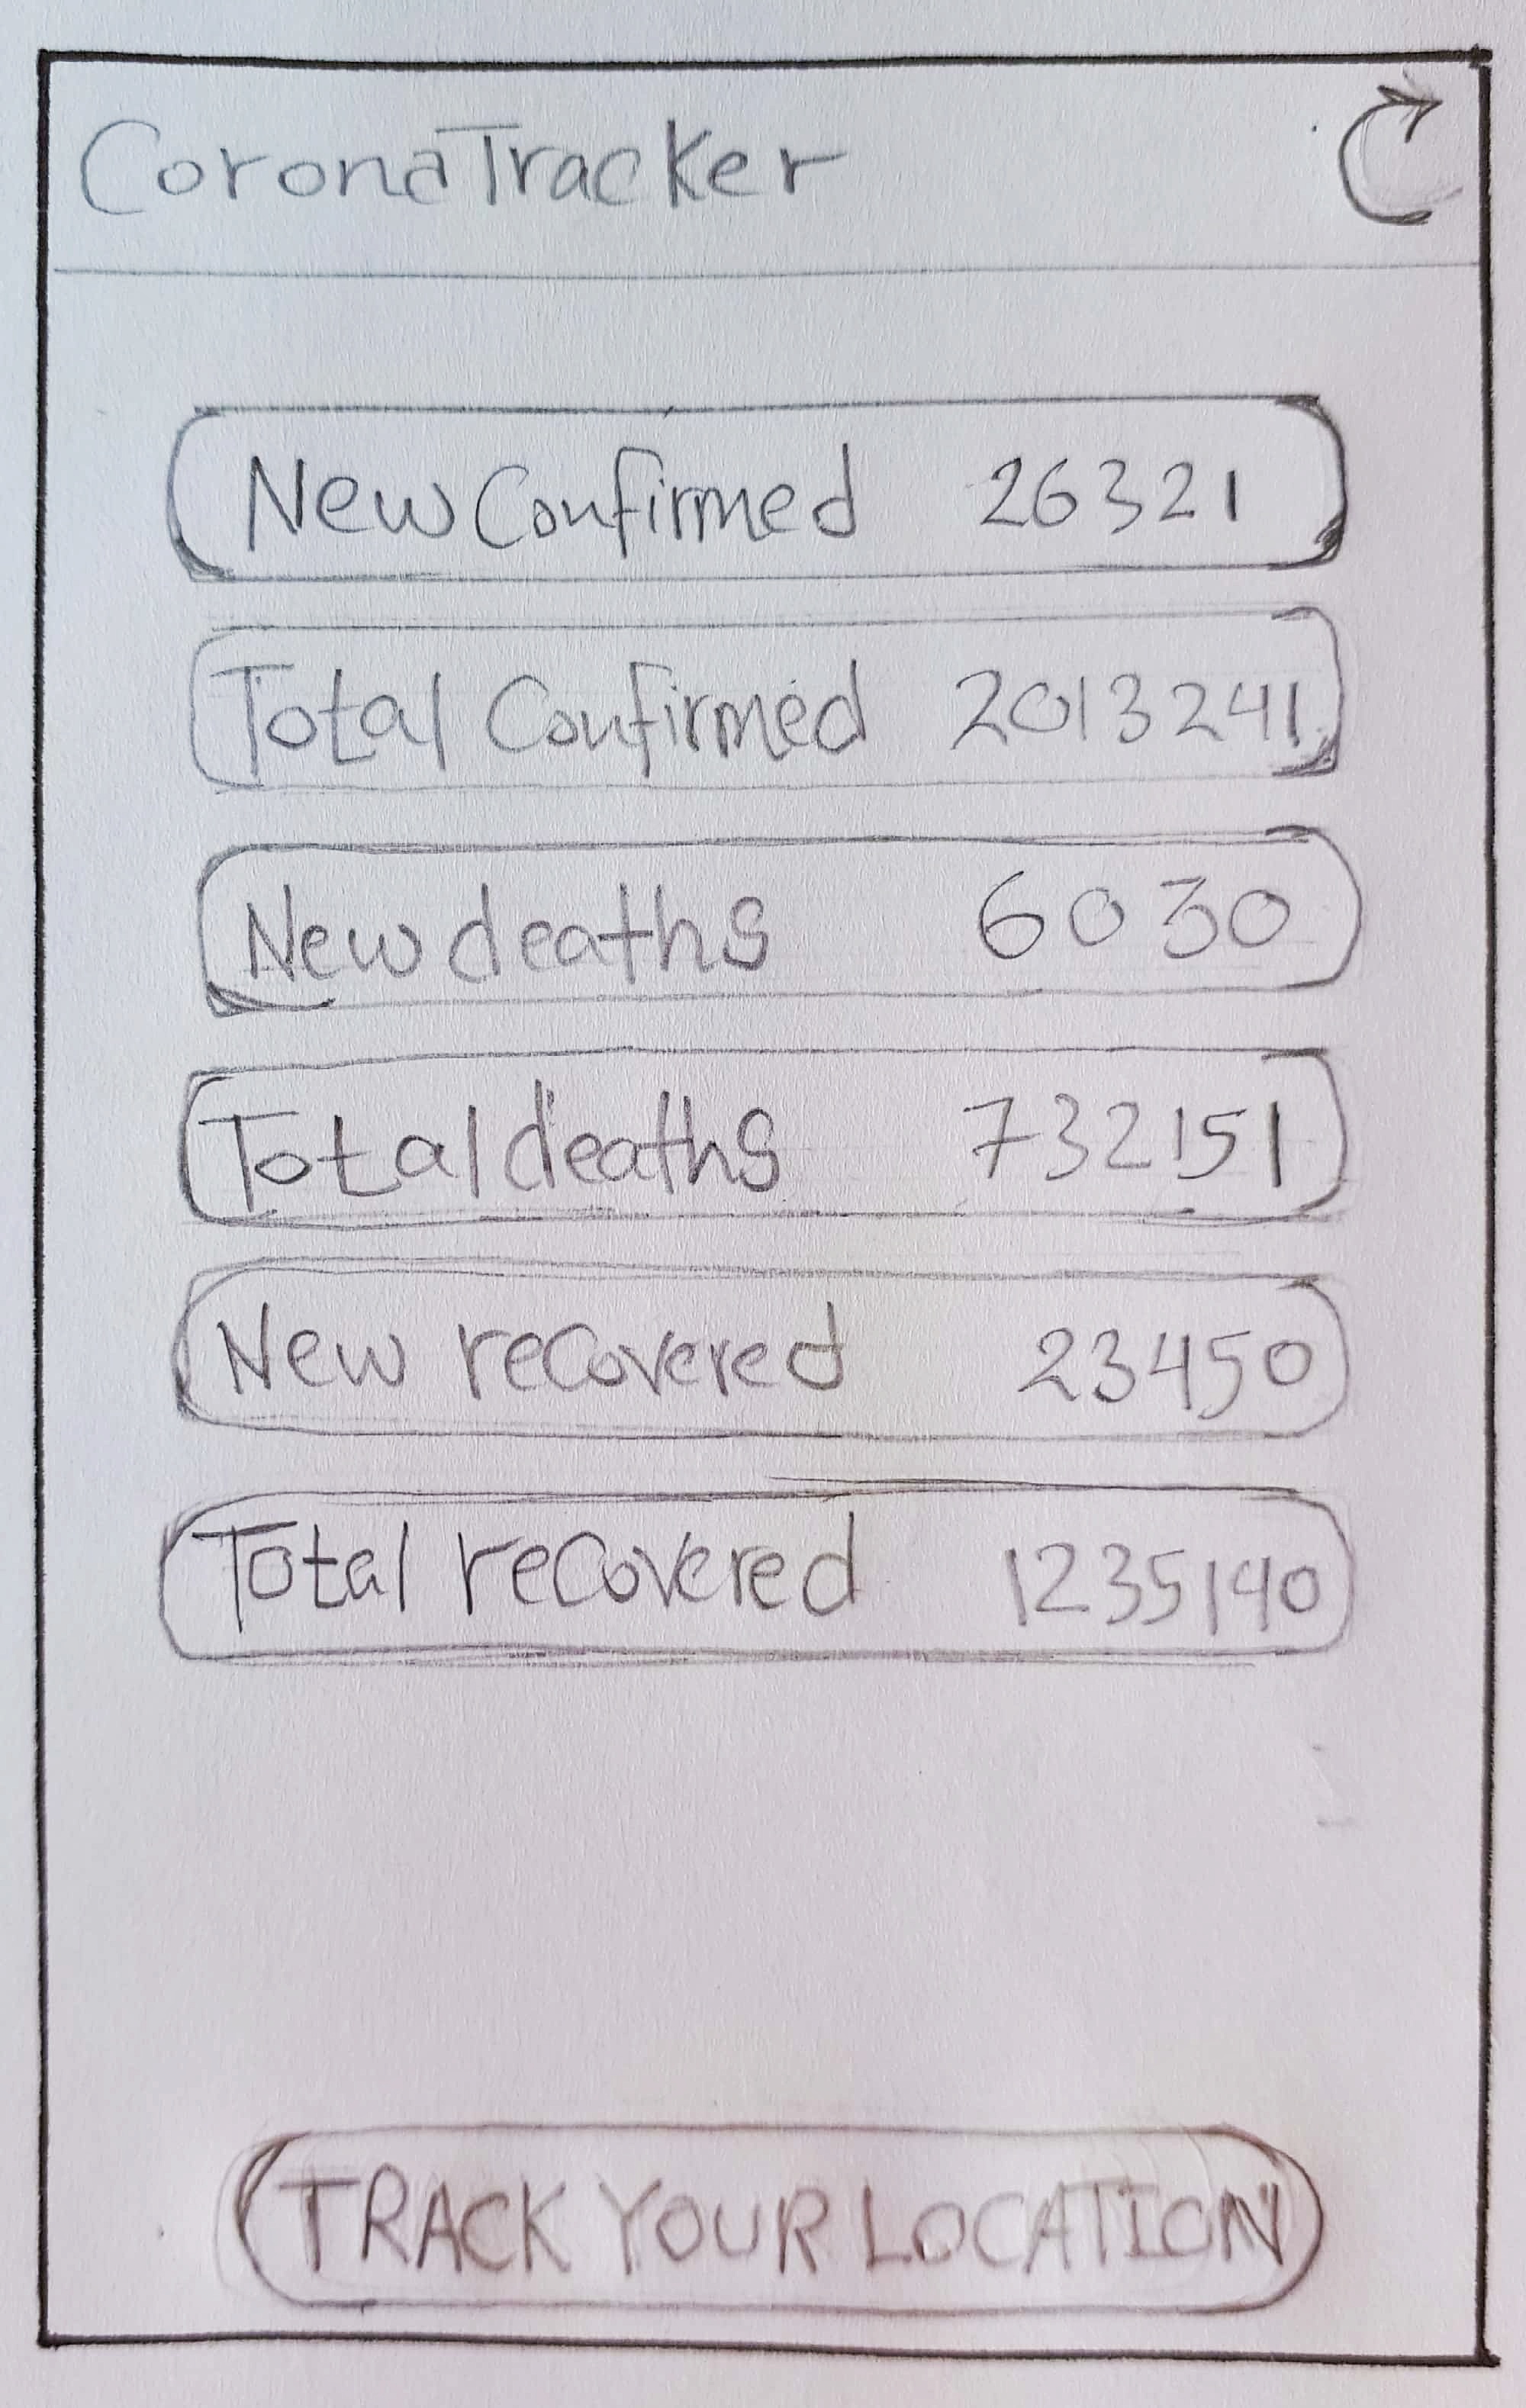 CoronaTracker
New Confirmed 26321
Total Confirmed 2013241
New deaths 6030
Total deaths 732151
New recovered 23450
Total recovered 1235140
TRACK YOUR LOCATION